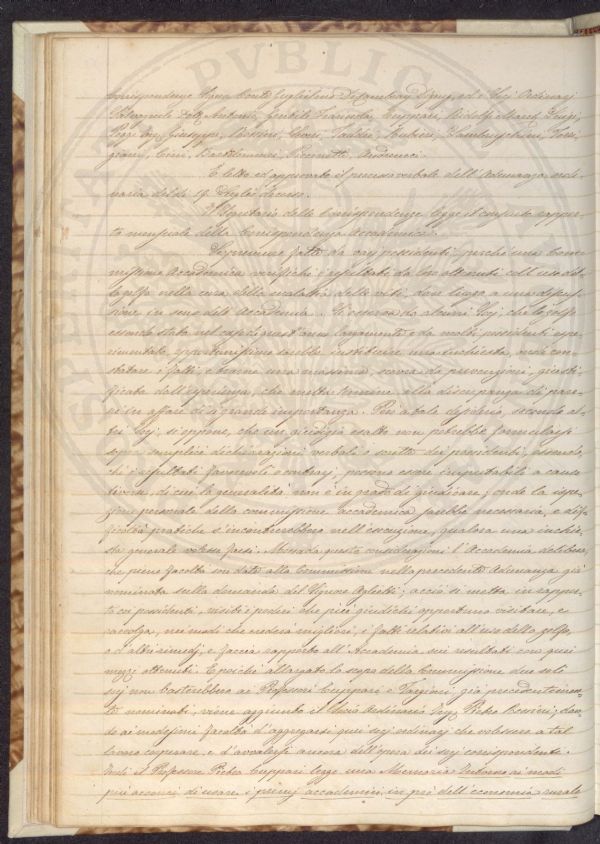 Corrispondenze Conte Guglielmo De Cambray Digny, ed i Soci Ordinarj
Salvagnoli Dott. Antonio, Cuppari, Ridolfi March. Luigi,
Pozzi Giuseppe, Bessini, Taddei, Rubieri, Lambruschini, Tor-
giani, Cini, Bartolommei,
È letto ed approvato il processo verbale dell'Adunanza ordi-
naria del dì 19 Luglio decorso.
Il Segretario delle Corrispondenze legge il consueto rappor-
to mensuale della Corrispondenza Accademica.
fatte da varj possidenti, perché una Com-
missione Accademica verifichi i resultati da loro ottenuti coll'uso del-
lo zolfo nella cura della malattia delle viti, dan luogo a una discus-
sione in seno dell'Accademia. Si osserva da alcuni Socj, che lo zolfo
essendo stato nel caso di quest'anno largamente e da molti possidenti spe-
rimentato, opportunissimo sarebbe instituire una inchiesta, onde con-
statare i fatti, e trarne una massima, scevra da prevenzioni, giusti-
ficata dall'esperienza, che metta termine alla discrepanza di pare-
ri in affare di sì grande importanza. Però a tale desiderio, secondo al-
tri Socj, si oppone, che un giudizio esatto non potrebbe formularsi
sopra semplici dichiarazioni verbali o scritte dei possidenti, essendo
che i resultati favorevoli o contrarj, possono essere imputabili a cause
diverse di cui la generalità non è in grado di giudicare; onde la ispe-
zione personale della commissione accademica sarebbe necessaria, e dif-
ficoltà pratiche s'incontrerebbero nell'esecuzione, qualora una inchie-
sta generale volesse farsi. Mossa da queste considerazioni l'Accademia delibera,
che piena facoltà sia data alla Commissione nella precedente Adunanza già
nominata sulla domanda del Signore acciò si metta in rappor-
ti coi possidenti, visiti i poderi che più giudichi opportuno visitare, e
raccolga, nei modi che crederà migliori, i fatti relativi all'uso dello zolfo,
e d'altri rimedj, e faccia rapporto all'Accademia sui resultati con quei
mezzi ottenuti. E poiché allargato lo scopo della Commissione due soli
socj non basterebbero ai Professori Cuppari e Targioni già precedentemen-
te nominati, viene aggiunto il Socio Ordinario Pietro Bessini; dan-
do ai medesimi facoltà d'aggregarsi quei socj ordinarj che volessero a tal
lavoro cooperare, e d'avvalersi ancora dell'opera dei socj corrispondenti.
Indi il Professore Pietro Cuppari legge una Memoria Intorno ai modi
più acconci di usare i premj accademici in prò dell'economia rurale